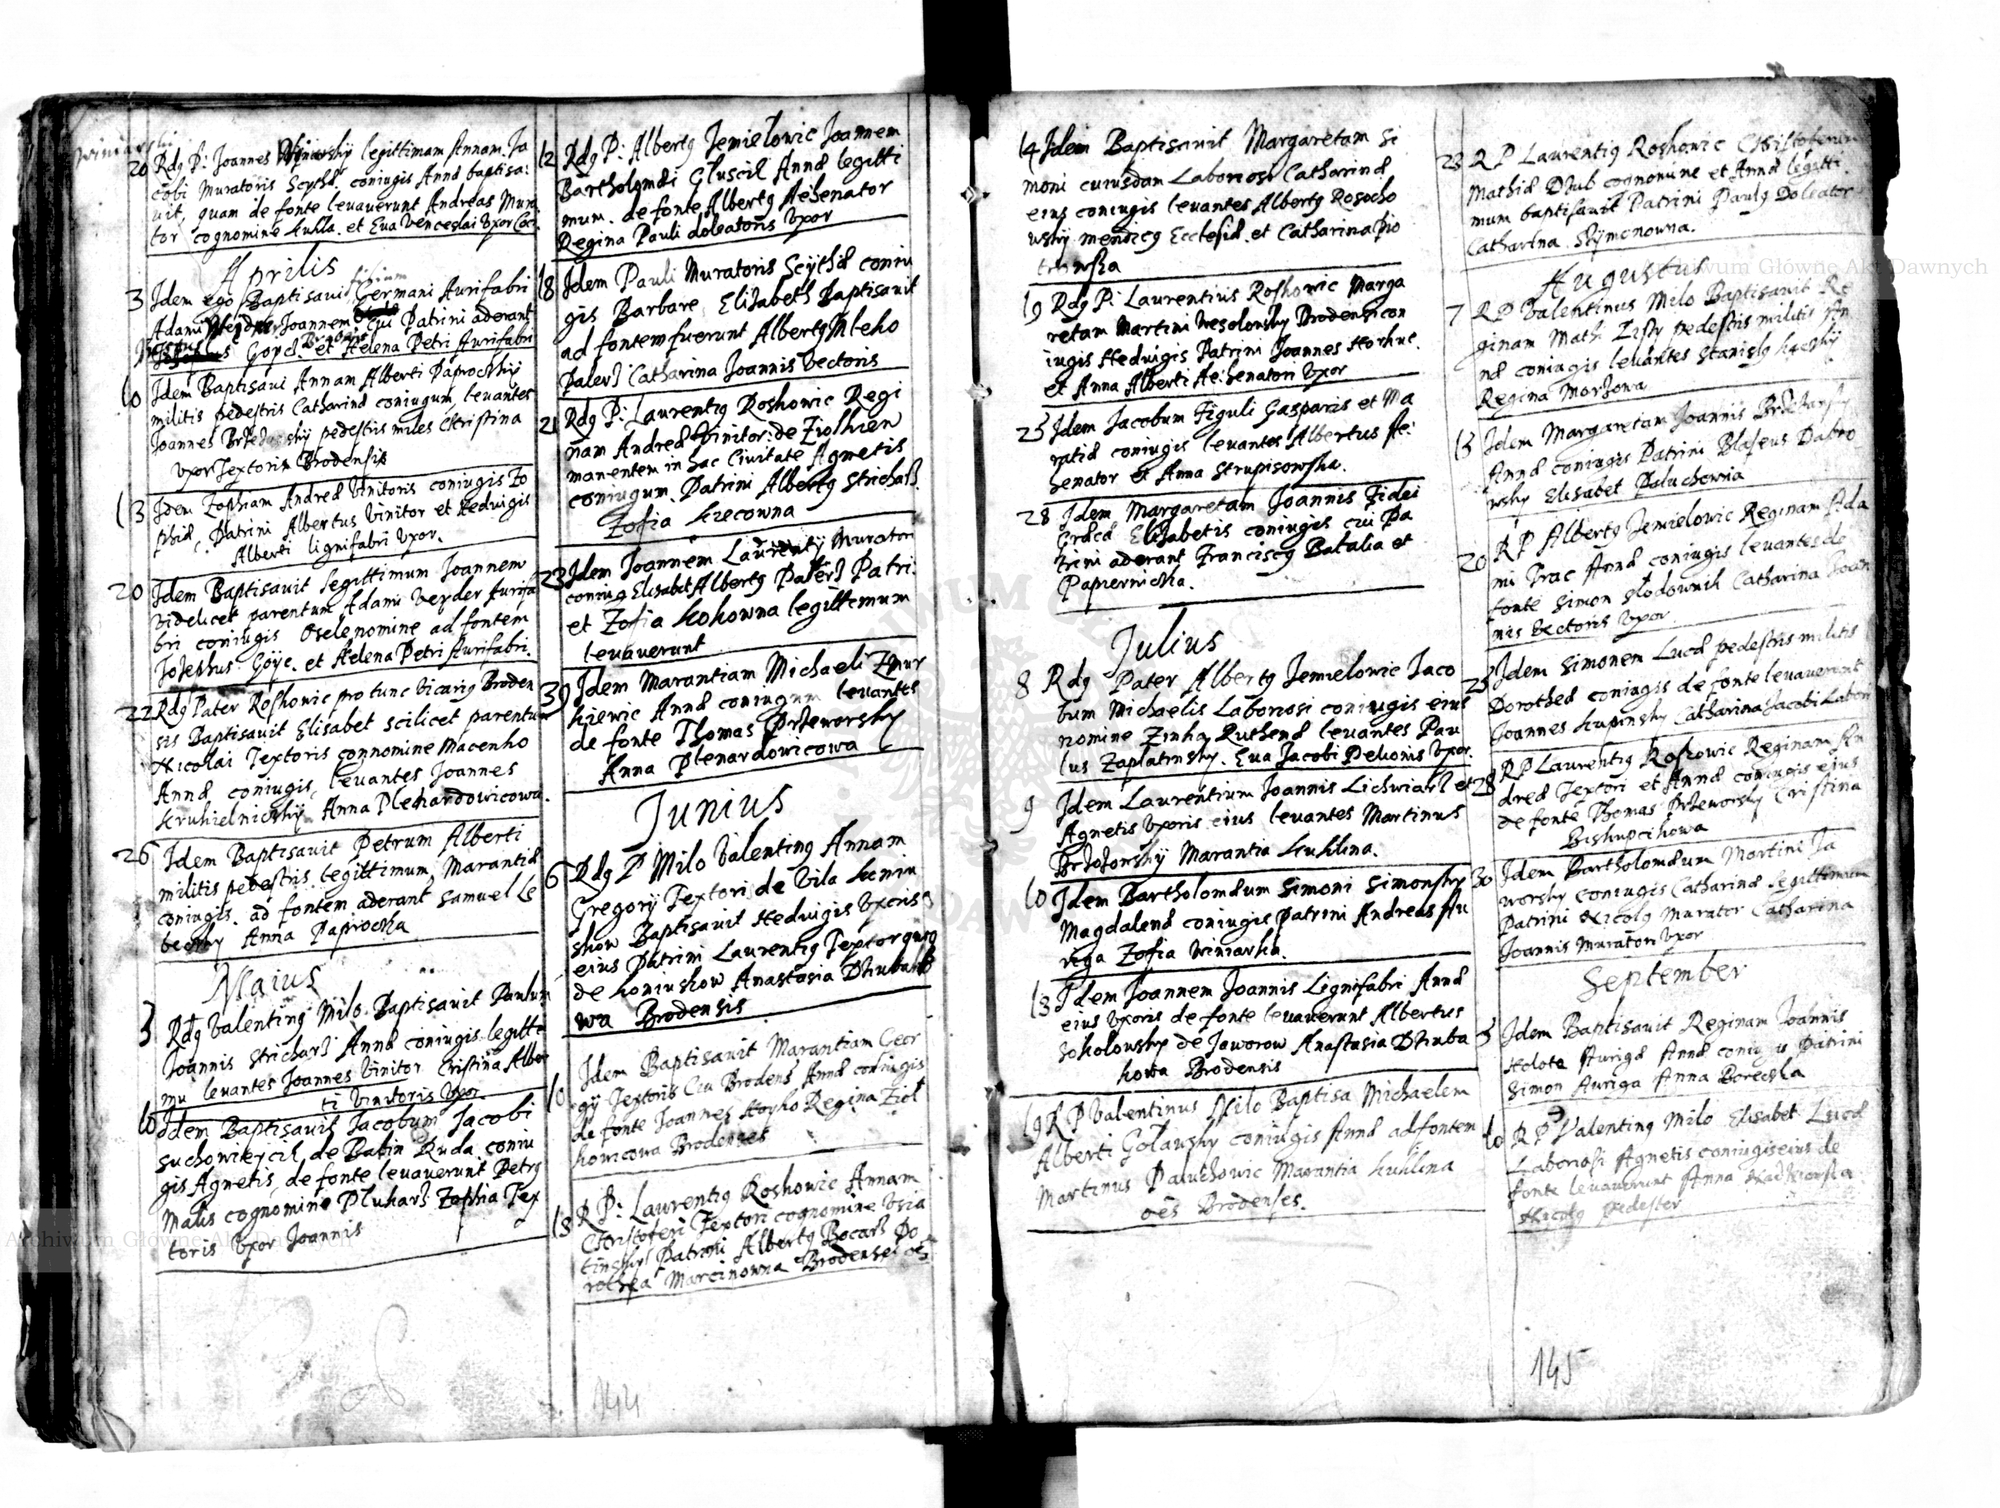 20 Rdg P: Joannes legittimam Annam Ja
cobi Muratoris Scythæ coniugis Annæ baptisa:
uit, quam de fonte leuauerunt Andreas Mura
tor cognomine Kukla et Eua Venceslai Vxor
Aprilis
filium
3 Idem ego Baptisaui Germani Aurifabri
Adami Joannem cui Patrini aderant
Goyc. et Helena Petri Aurifabri
10 Idem Baptisaui Annam Alberti Paprockÿ
militis pedestris Catharinæ coniugum leuantes
Joannes pedestris miles Christina
Vxor Textoris Brodensis
13 Idem Zophiam Andreæ Vinitoris coniugis Zo
phiæ, Patrini Albertus Vinitor et Heduigis
Alberti lignifabri Vxor.
20 Idem Baptisauit legittimum Joannem
videlicet parentum Adami Veyder Aurifa
bri coniugis Osele nomine ad fontem
Josephus Goyc. et Helena Petri Aurifabri.
22 Rdg Pater Roskowic pro tunc vicarig Broden
sis Baptisauit Elisabet scilicet parentum
Nicolai Textoris connomine Macenko
Annæ coniugis, leuantes Joannes
Krukielnickÿ Anna Plekardowicowa.
26 Idem Baptisauit Petrum Alberti
militis pedestris legittimum, Marantiæ
coniugis. ad fontem aderant Samuel Le
Anna Paprocka
Maius
3 Rdg Valenting Milo Baptisauit Paulum
Joannis Stricharz Annæ coniugis legitti
mu leuantes Joannes Vinitor Cristina Alber
ti Vinitoris Vxor
10 Idem Baptisauit Jacobum Jacobi
de Babin Ruda coniu
gis Agnetis, de fonte leuauerunt Petrg
Malis cognomine Pluharz Zophia Tex
toris Vxor Joannis
12 Rdg P: Albertg Jemielowic Joannem
Bartholomæi Gluscik Annæ legitti
mum. de fonte Albertg Aehenator
Regina Pauli doleatoris Vxor
18 Idem Pauli Muratoris Scythæ coniu
gis Barbare Elisabeth Baptisauit
ad fontem fuerunt Albertg
Palerz Catharina Joannis Vectoris
21 Rdg P: Laurentig Roskowic Regi
nam Andreæ Vinitor: de Ziolkiew
manentem in hac Ciuitate Agnetis
coniugum. Patrini Albertg Stricharz
Zofia Krecowna
23 Idem Joannem Laurentÿ Muratori
coniug Elisabet Albertg Palerz Patri.
et Zofia Kokowna legittimum
leuauerunt
30 Idem Marantiam Michaeli
kiewic Annæ coniugum leuantes
de fonte Thomas Przeworsky
Anna Plenardowicowa
Junius
6 Rdg P Milo Valenting Annam
Gregorÿ Textori de Vila Koniu
show Baptisauit Heduigis Vxoris
eius Patrini Laurentig Textor
de Koniushow Anastasia
wa Brodensis
10 Idem Baptisauit Marantiam Geor
gÿ Textoris Ciu Brodens Annæ coniugis
de fonte Joannes Horho Regina Ziol
kowicowa Brodenses
13 R P: Laurentig Roskowic Annam
Christoferi Textori cognomine
Patrini Albertg
Marcinowna Brodenses oẽs
144
14 Idem Baptisauit Margaretam Si
moni cuiusdam Laboriosi Catharinæ
eius coniugis leuantes Albertg Rosocho
wskÿ mendicg Ecclesiæ et Catharina Pio
trowska
19 Rdg P: Laurentius Roskowic Marga
retam Martini Wesolowsky Brodensi con
iugis Heduigis Patrini Joannes
et Anna Alberti Ae: Senatori Vxor
25 Idem Jacobum Figuli Gasparis et Ma
ratiæ coniugis leuantes Albertus Ae:
Senator et Anna Strupisowska.
28 Idem Margaretam Joannis Fidei
Græcæ Elisabetis coniugis cui Pa
trini aderant Franciscg Batalia et
Papiernicka.
Julius
8 Rdg Pater Albertg Jemielowic Jaco
bum Michaelis Laboriosi coniugis eius
nomine Zinka Ruthenæ leuantes Pau
lus Zaplatinsky. Eua Jacobi Vxor
9 Idem Laurentium Joannis Lichwiarz et
Agnetis Vxoris eius leuantes Martinus
Marantia Kuklina.
10 Idem Bartholomæum Simoni Simonsky
Magdalenæ coniugis Patrini Andreas Au
riga Zofia Winiarka.
13 Idem Joannem Joannis Lignifabri Annæ
eius Vxoris de fonte leuauerunt Albertus
Sokolowsky de Jaworow Anastasia
kowa Brodensis
19 R P Valentinus Milo Baptisa Michaelem
Alberti Golawsky coniugis Annæ ad fontem
Martinus Paluchowic Marantia Kuklina
oẽs Brodenses.
23 R P Laurentig Roskowic Christoferum
Mathiæ cognomine et Annæ legitti
mum baptisauit Patrini Paulg Doleator
Catharina Szymonowna.
Augustus
7 R P Valentinus Milo Baptisauit Re
ginam Math. pedestris militis An
næ coniugis leuantes Stanislg
Regina
13 Idem Margaretam Joannis
Annæ coniugis Patrini Blaseus Dabro
wsky Elisabet Paluchowna
20 R P Albertg Jemielowic Reginam Ada
mi Annæ coniugis leuantes de
fonte Simon Slodownik Catharina Joan
nis Vectoris Vxor
25 Idem Simonem Lucæ pedestris militis
Dorotheæ coniugis de fonte leuauerunt
Joannes Kupinsky Catharina Jacobi Labori
28 R P Laurentig Roskowic Reginam An
dreæ Textori et Annæ coniugis eius
de fonte Thomas Przeworsky Cristina
Biskupcikowa
30 Idem Bartholomæum Martini Ja
worsky coniugis Catharinæ legittimum
Patrini Nicolg Murator Catharina
Joannis Muratori Vxor
September
3 Idem Baptisauit Reginam Joannis
Holota Aurigæ Annæ coniugis Patrini
Simon Auriga Anna Borecka
10 R P Valenting Milo Elisabet Lucæ
Laboriosi Agnetis coniugis eius de
fonte leuauerunt Anna
Nicolg pedester
145
Archiwum Główne Akt Dawnych
Archiwum Główne Akt Dawnych